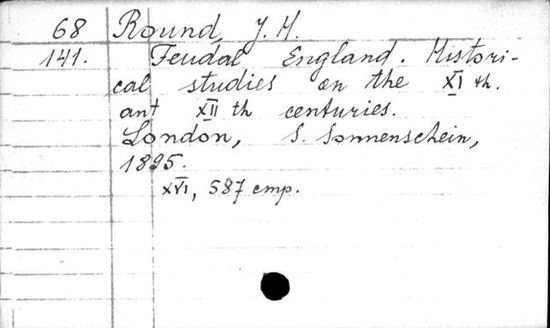 68 Round, J. H.
141. Feudal England. Histori-
cal studies on the XI th.
ant XII th centuries.
London, S. Sonnenschein,
1895.
XVI, 587 cmp.